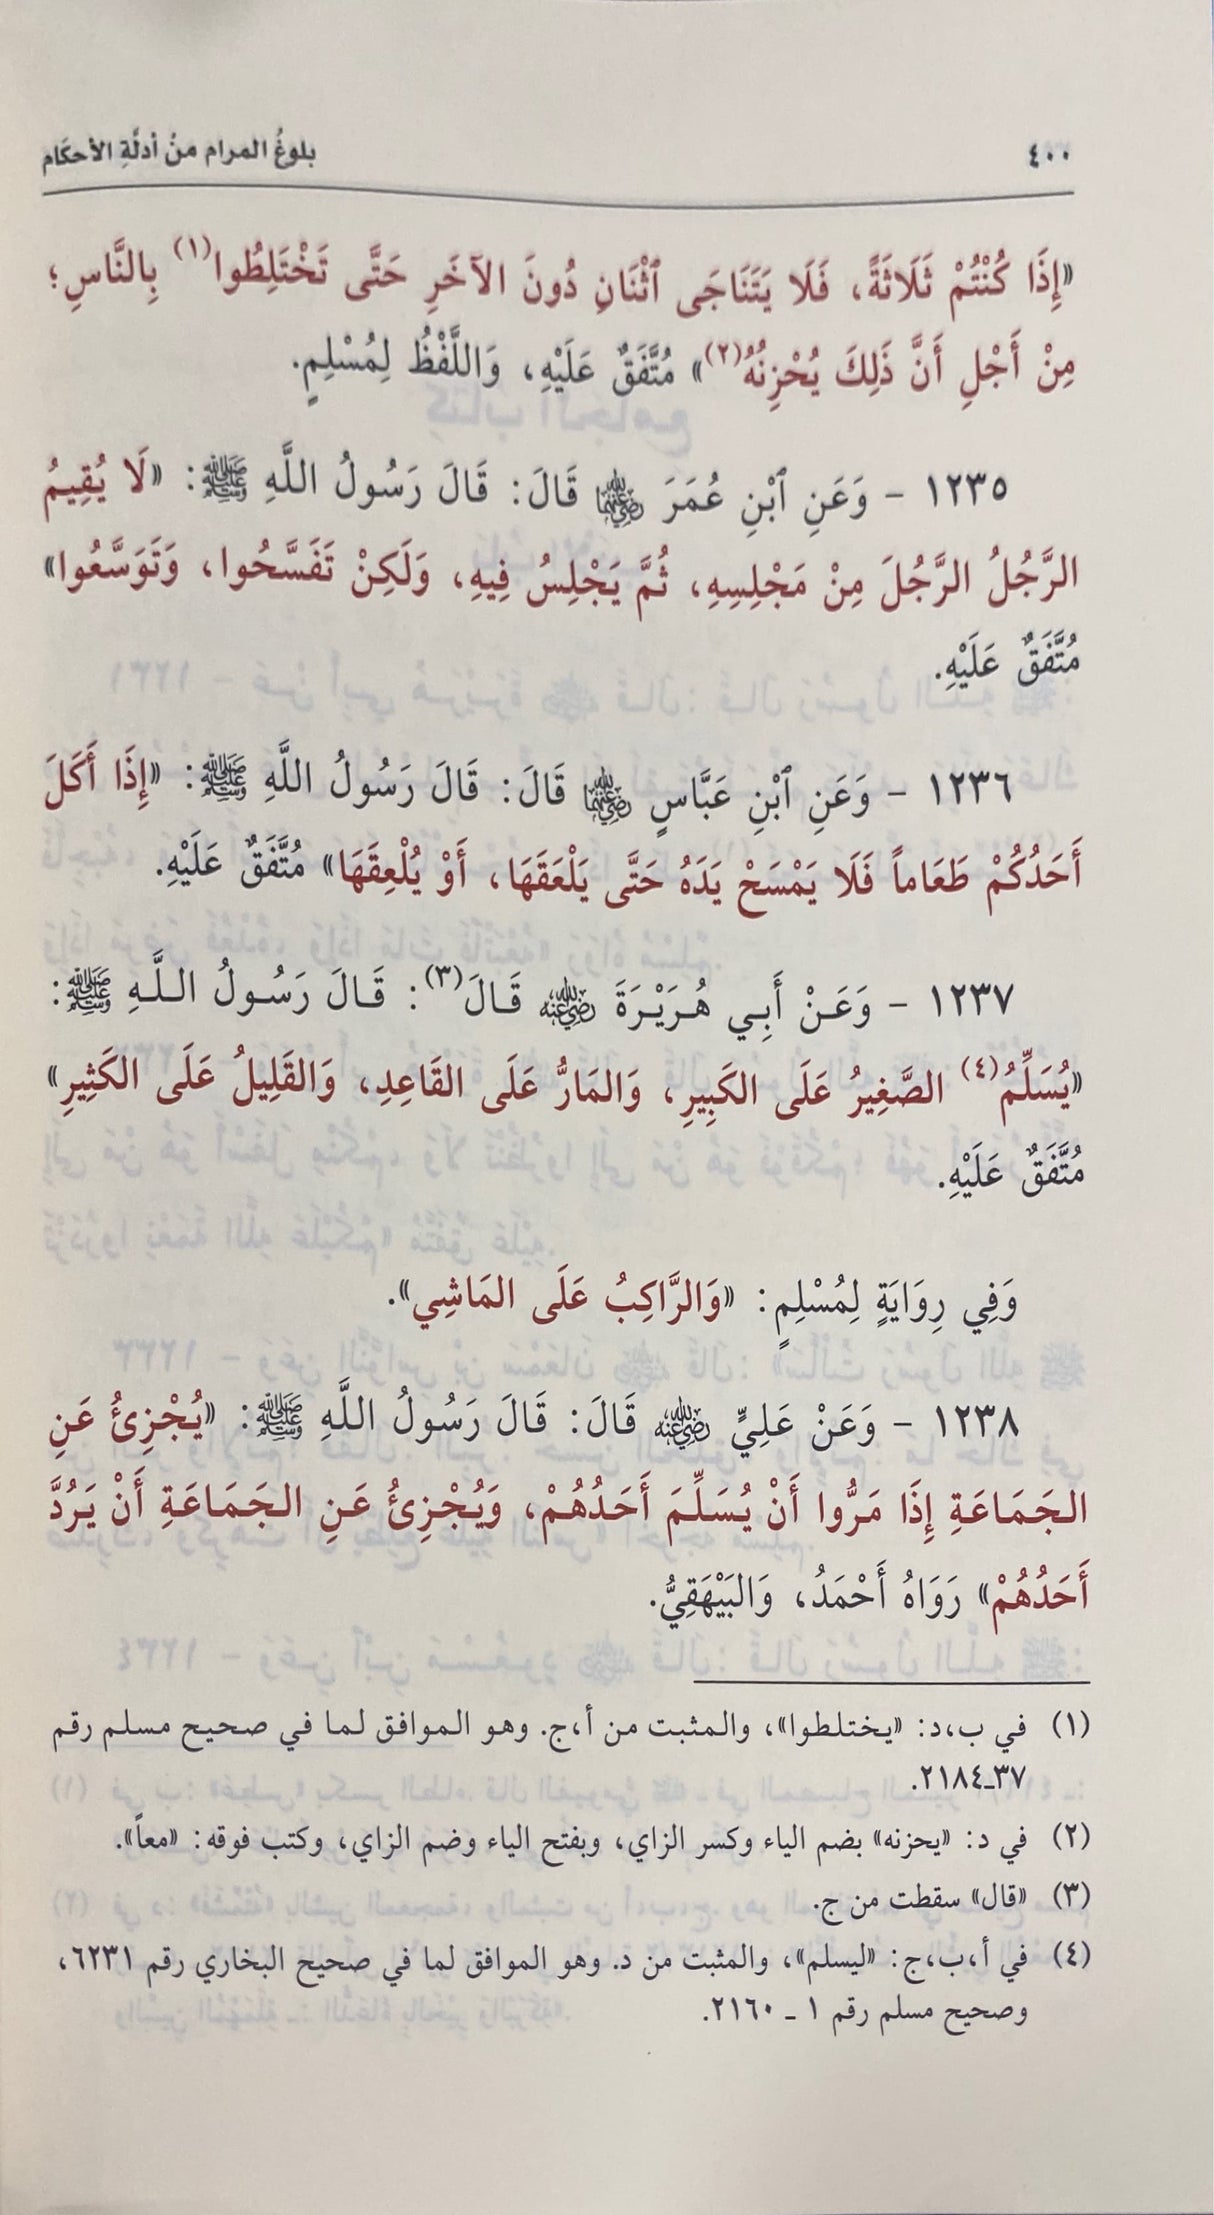 ٤٠٠
بلوغُ المرام منْ أدلَّةِ الأحكَام
«إِذَا كُنْتُمْ ثَلَاثَةً، فَلَا يَتَنَاجَى ٱثْنَانِ دُونَ الآخَرِ حَتَّى تَخْتَلِطُوا(١) بِالنَّاسِ؛
مِنْ أَجْلِ أَنَّ ذَلِكَ يُحْزِنُهُ(٢)» مُتَّفَقٌ عَلَيْهِ، وَاللَّفْظُ لِمُسْلِمٍ.
١٢٣٥ - وَعَنِ ٱبْنِ عُمَرَ رضي الله عنهما قَالَ: قَالَ رَسُولُ اللَّهِ ﷺ: «لَا يُقِيمُ
الرَّجُلُ الرَّجُلَ مِنْ مَجْلِسِهِ، ثُمَّ يَجْلِسُ فِيهِ، وَلَكِنْ تَفَسَّحُوا، وَتَوَسَّعُوا»
مُتَّفَقٌ عَلَيْهِ.
١٢٣٦ - وَعَنِ ٱبْنِ عَبَّاسٍ رضي الله عنهما قَالَ: قَالَ رَسُولُ اللَّهِ ﷺ: «إِذَا أَكَلَ
أَحَدُكُمْ طَعَاماً فَلَا يَمْسَحْ يَدَهُ حَتَّى يَلْعَقَهَا، أَوْ يُلْعِقَهَا» مُتَّفَقٌ عَلَيْهِ.
١٢٣٧ - وَعَنْ أَبِي هُرَيْرَةَ رضي الله عنه قَالَ(٣): قَالَ رَسُولُ اللَّهِ ﷺ:
«يُسَلِّمُ(٤) الصَّغِيرُ عَلَى الكَبِيرِ، وَالمَارُّ عَلَى القَاعِدِ، وَالقَلِيلُ عَلَى الكَثِيرِ»
مُتَّفَقٌ عَلَيْهِ.
وَفِي رِوَايَةٍ لِمُسْلِمٍ: «وَالرَّاكِبُ عَلَى المَاشِي».
١٢٣٨ - وَعَنْ عَلِيٍّ رضي الله عنه قَالَ: قَالَ رَسُولُ اللَّهِ ﷺ: «يُجْزِئُ عَنِ
الجَمَاعَةِ إِذَا مَرُّوا أَنْ يُسَلِّمَ أَحَدُهُمْ، وَيُجْزِئُ عَنِ الجَمَاعَةِ أَنْ يَرُدَّ
أَحَدُهُمْ» رَوَاهُ أَحْمَدُ، وَالبَيْهَقِيُّ.
(١) في ب،د: «يختلطوا»، والمثبت من أ،ج. وهو الموافق لما في صحيح مسلم رقم
٣٧ـ٢١٨٤.
(٢) في د: «يحزنه» بضم الياء وكسر الزاي، وبفتح الياء وضم الزاي، وكتب فوقه: «معاً».
(٣) «قال» سقطت من ج.
(٤) في أ،ب،ج: «ليسلم»، والمثبت من د. وهو الموافق لما في صحيح البخاري رقم ٦٢٣١،
وصحيح مسلم رقم ١ ـ ٢١٦٠.